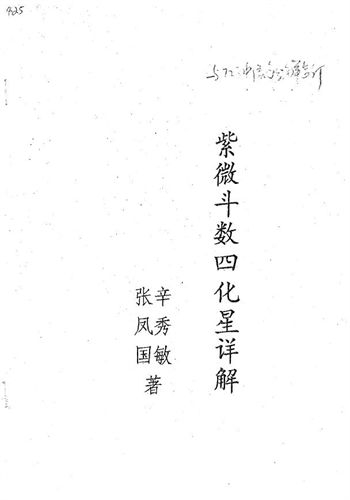 925
紫微斗数四化星详解
辛秀敏
张凤国
著